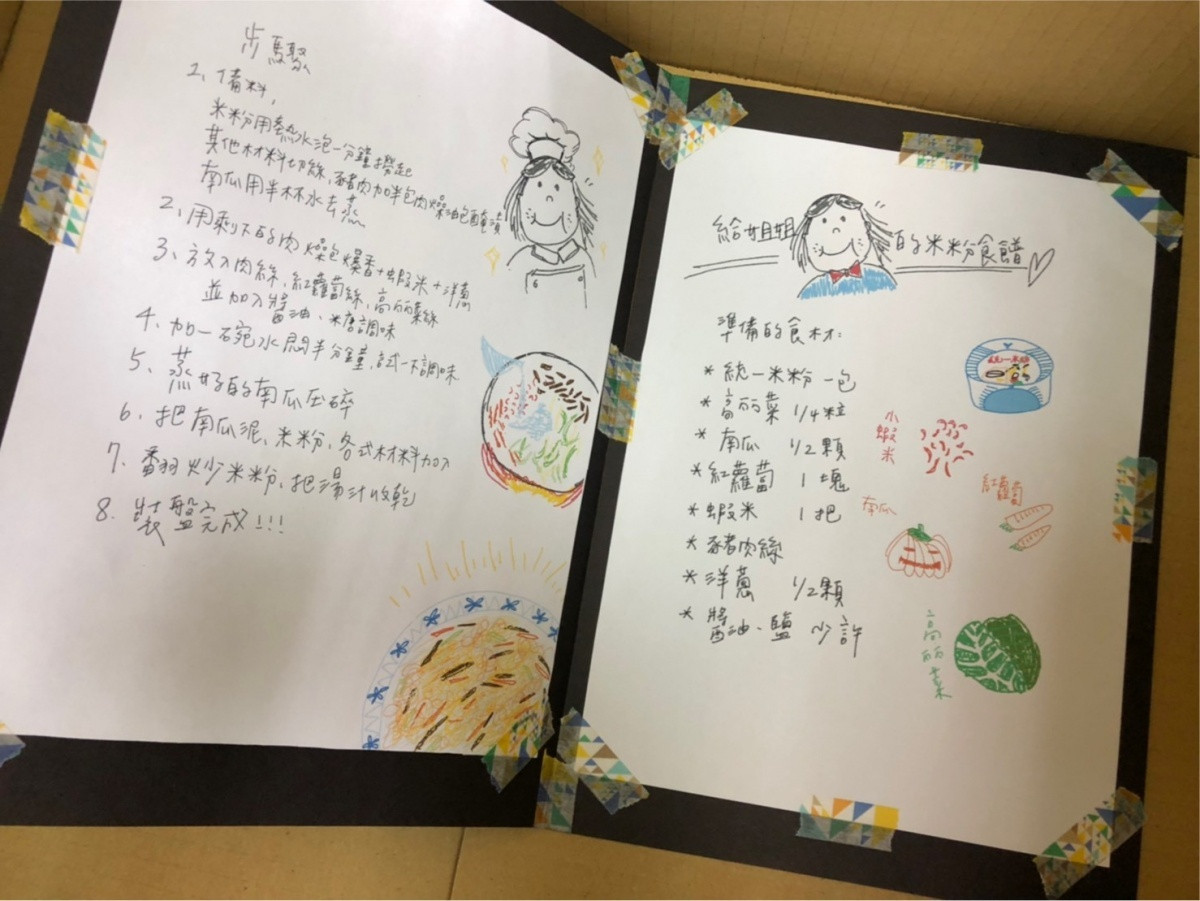 步驟
1、備料,
米粉用熱水泡一分鐘撈起
其他材料切絲、豬肉加半包肉燥油包醃漬
南瓜用半杯水去蒸
2、用剩下的肉燥包爆香+蝦米+洋蔥
3、放入肉絲,紅蘿蔔絲、高麗菜絲
並加入醬油、米唐調味
4、加一碗水悶半分鐘,試一下調味
5、蒸好的南瓜压碎
6、把南瓜泥、米粉、各式材料加入
7、翻炒米粉,把湯汁收乾
8、裝盤完成!!!
給姐姐的米粉食譜
準備的食材:
* 統一米粉 一包
* 高丽菜 1/4粒
* 南瓜 1/2顆
* 紅蘿蔔 1塊
* 蝦米 1把
* 豬肉絲
* 洋蔥 1/2顆
* 醬油、鹽 少許
統一米粉
小蝦米
紅蘿蔔
南瓜
高丽菜